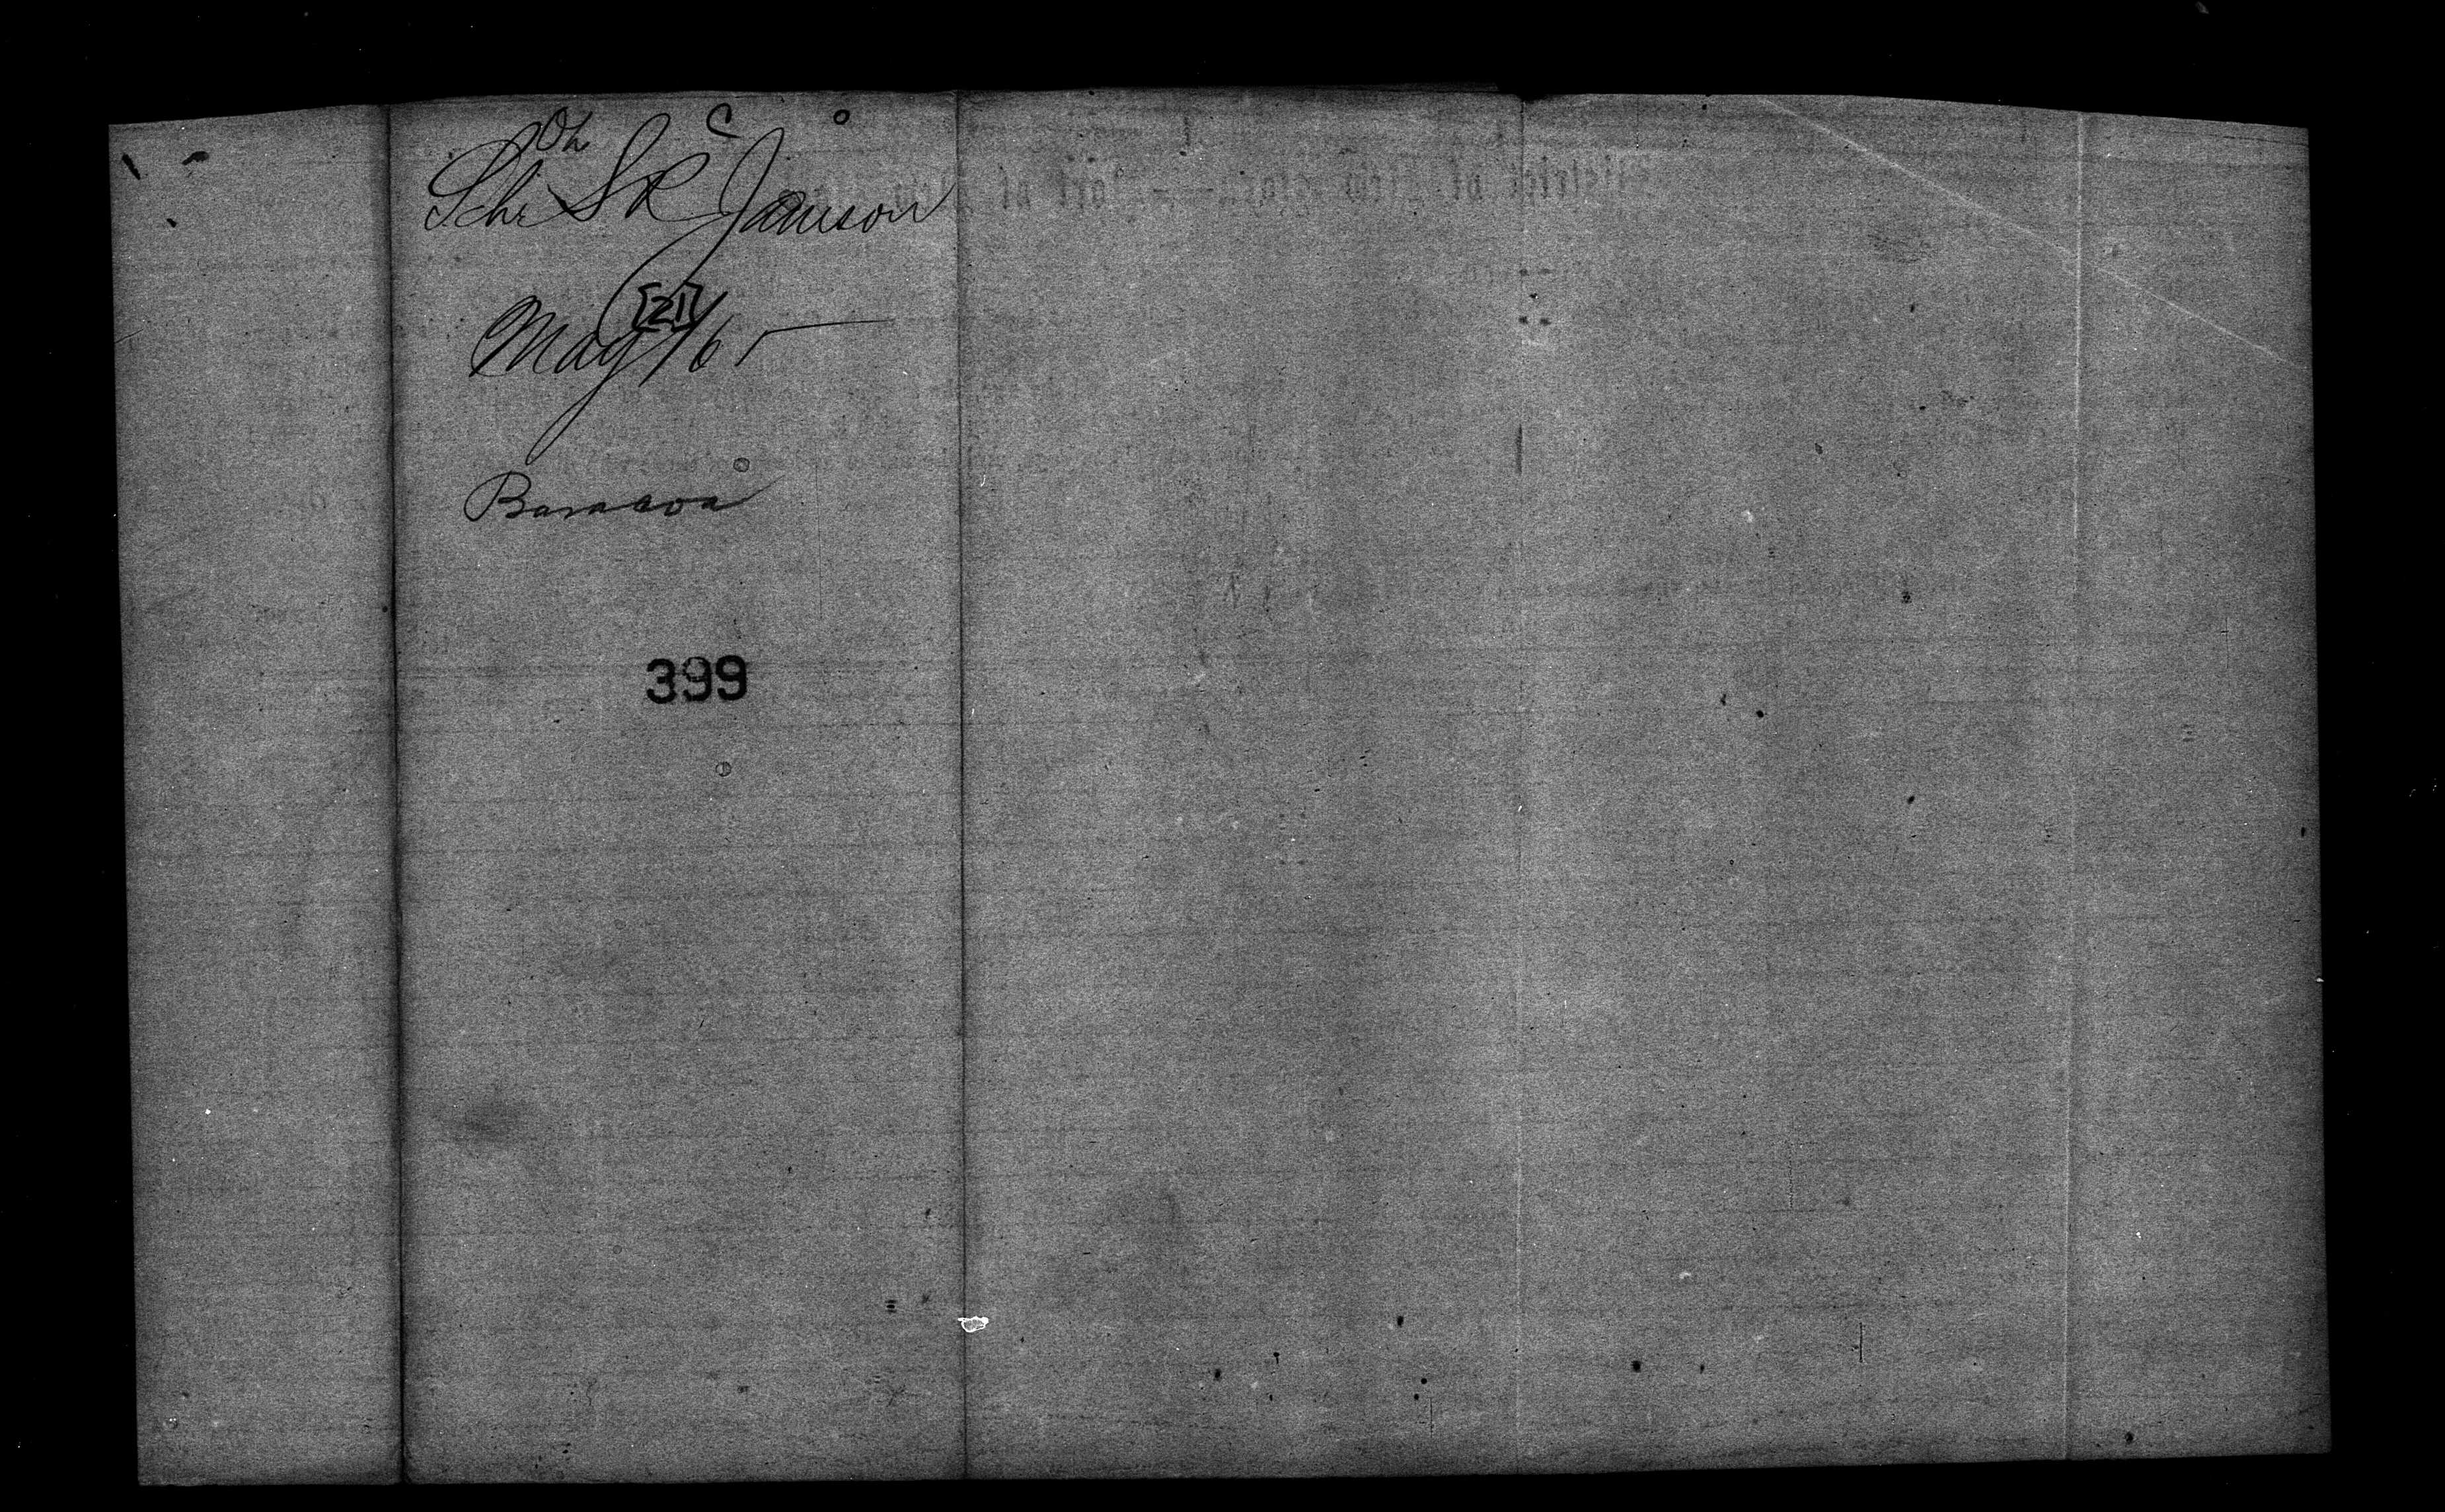 Oh
Schr S R Jamison
[21]
May /65
Baracoa
399